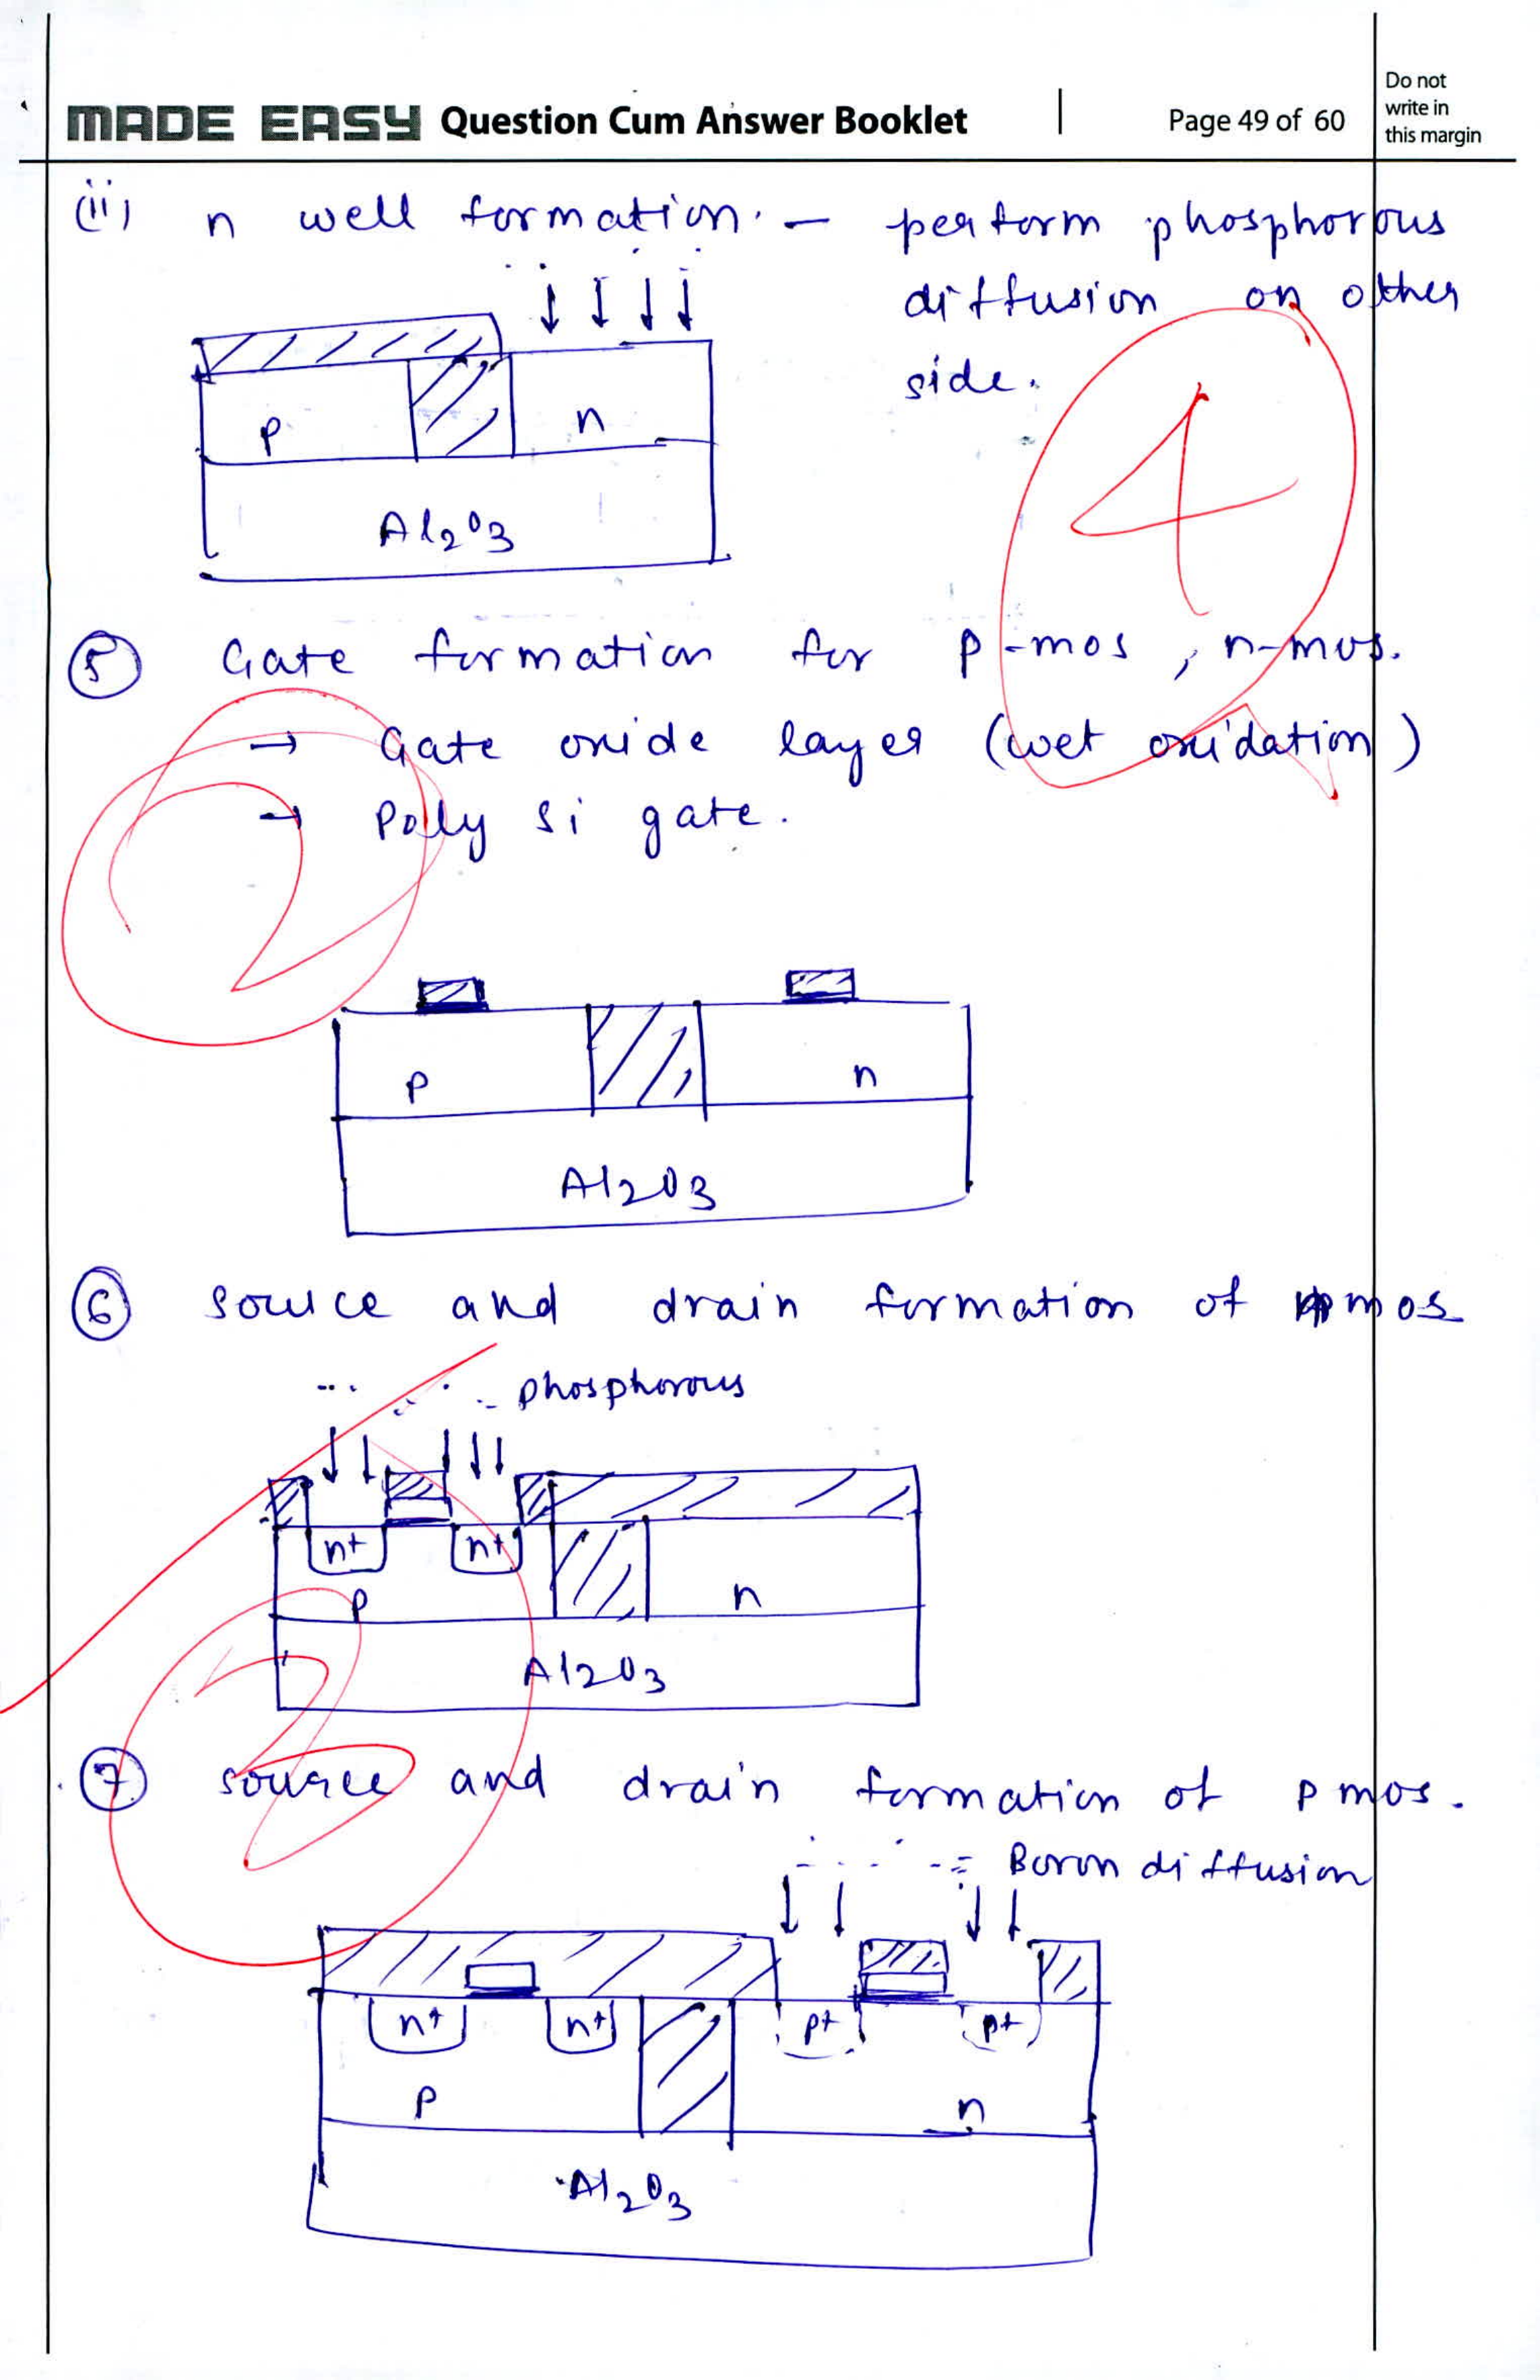 MADE EASY Question Cum Answer Booklet
Page 49 of 60
Do not
write in
this margin
(ii) n well formation. — perform phosphorous
diffusion on other
side.
p
n
Al2O3
4
⑤ Gate formation for p-mos, n-mos.
→ Gate oxide layer (wet oxidation)
→ Poly Si gate.
2
p
n
Al2O3
⑥ source and drain formation of mos
phosphorous
n+
n+
p
n
Al2O3
⑦ source and drain formation of pmos.
Boron diffusion
n+
n+
p+
p+
p
n
Al2O3